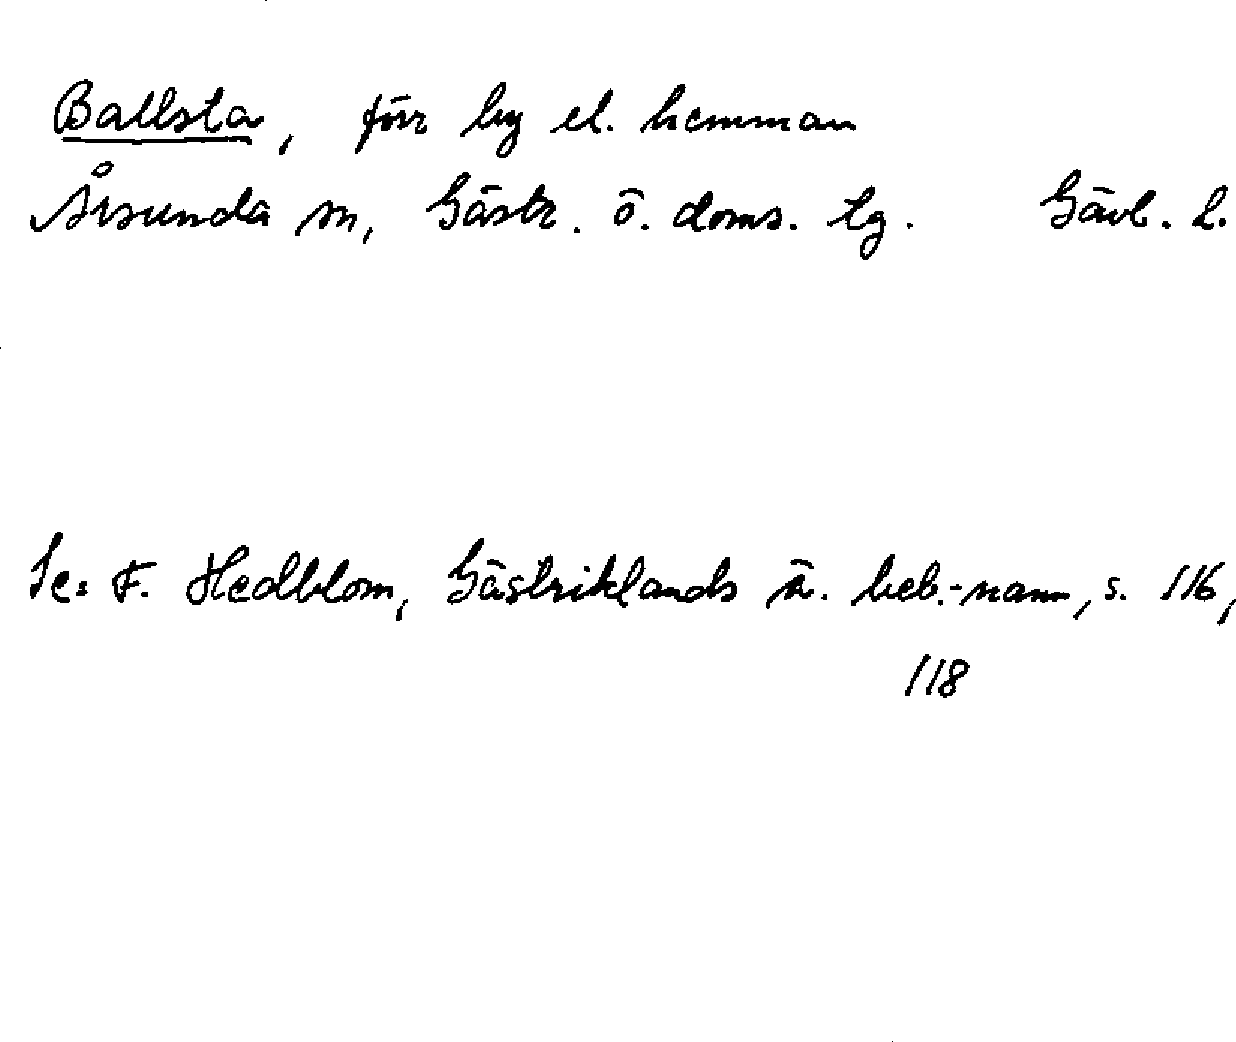 Ballsta, förr by el. hemman
Årsunda sn, Gästr. ö. doms. tg. Gävl. l.
Se: F. Hedblom, Gästriklands ä. beb.-namn, s. 116,
118